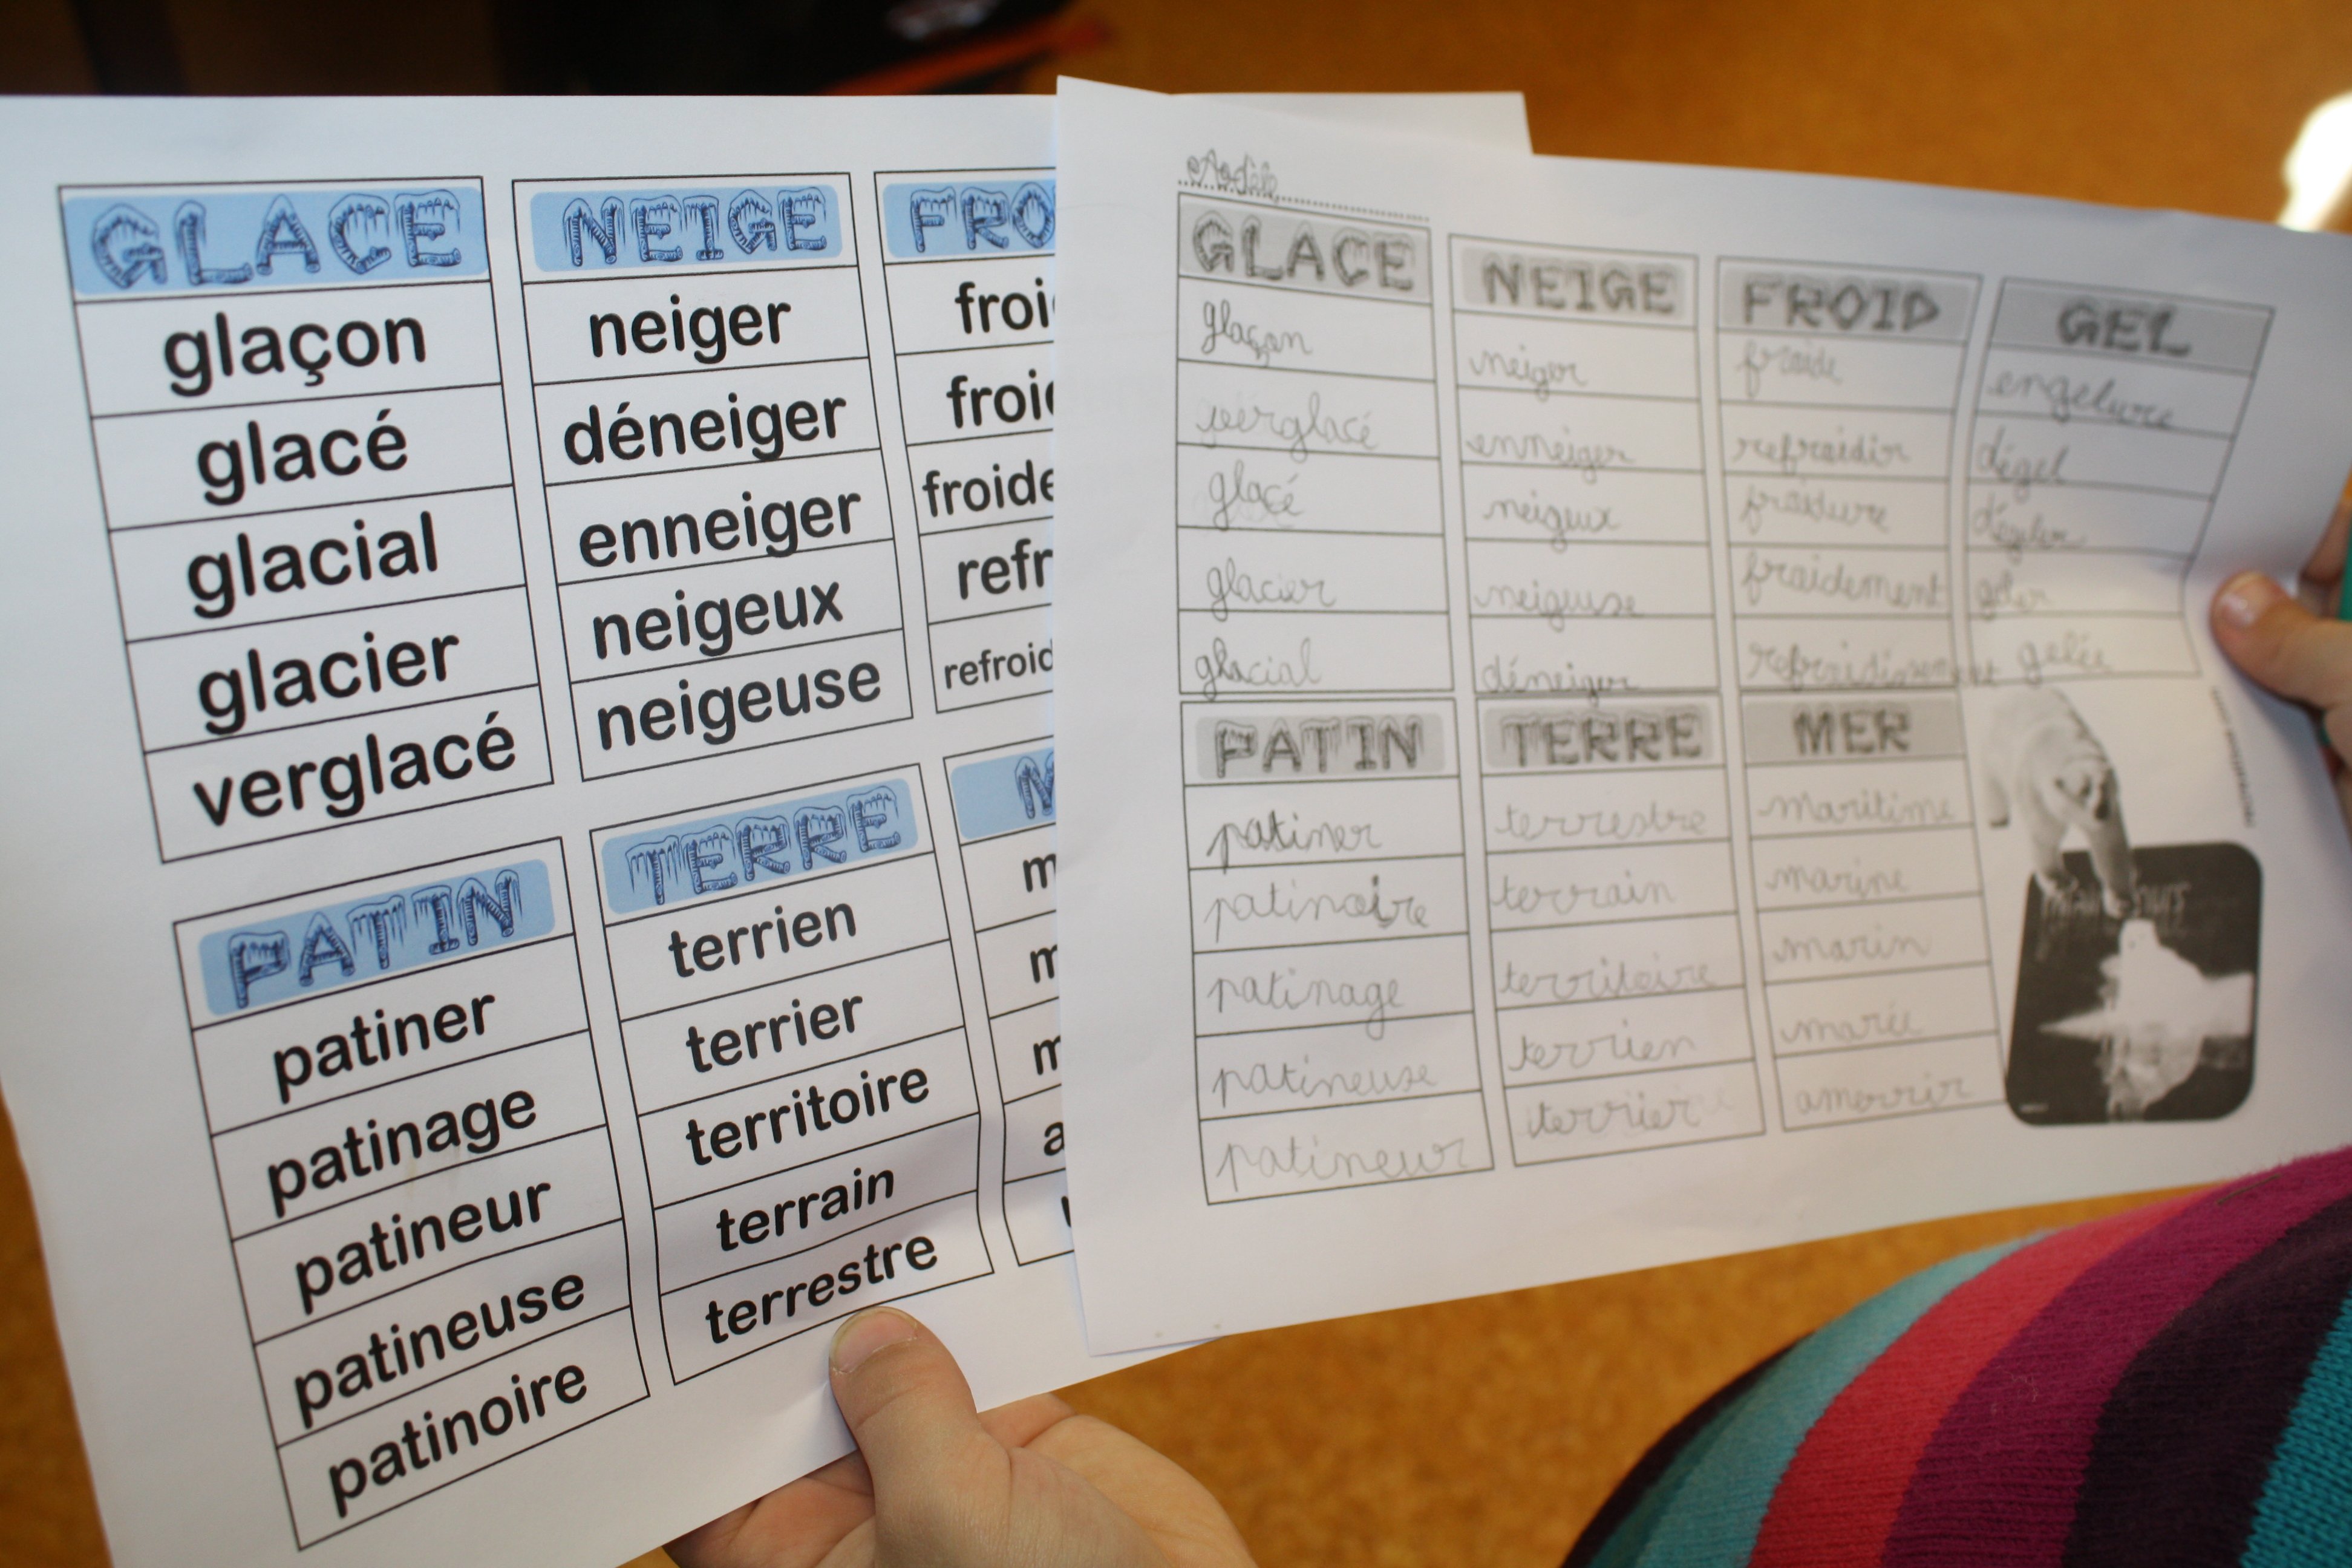 GLACE
glaçon
glacé
glacial
glacier
verglacé
NEIGE
neiger
déneiger
enneiger
neigeux
neigeuse
FRO
froi
froid
froide
refr
refroid
PATIN
patiner
patinage
patineur
patineuse
patinoire
TERRE
terrien
terrier
territoire
terrain
terrestre
M
m
m
m
a
GLACE
glaçon
verglacé
glacé
glacier
glacial
NEIGE
neiger
enneiger
neigeux
neigeuse
déneiger
FROID
froide
refroidir
froidure
froidement
refroidissement
GEL
engelure
dégel
dégeler
geler
gelée
PATIN
patiner
patinoire
patinage
patineuse
patineur
TERRE
terrestre
terrain
territoire
terrien
terrier
MER
maritime
marine
marin
marée
amerrir